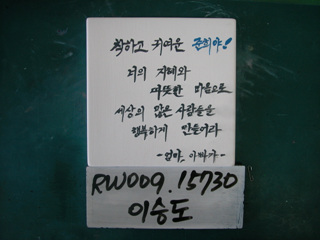 착하고 귀여운 준희야!
너의 지혜와
따뜻한 마음으로
세상의 많은 사람들을
행복하게 만들어라
-엄마, 아빠가-
RW009.15730
이승도